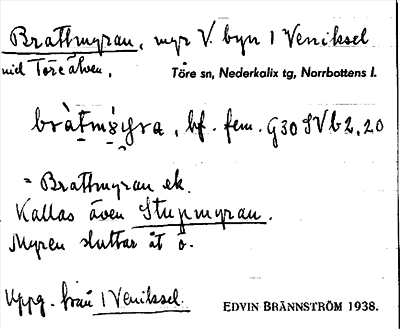 Brattmyran, myr V. byn 1 Veniksel
vid Töreälven,
Töre sn, Nederkalix tg, Norrbottens l.
bràtmỳra, bf. fem. G30 SV b 2,20
= Brattmyran ek.
Kallas även Stupmyran.
Myren sluttar åt ö.
Uppg. från 1 Veniksel.
EDVIN BRÄNNSTRÖM 1938.